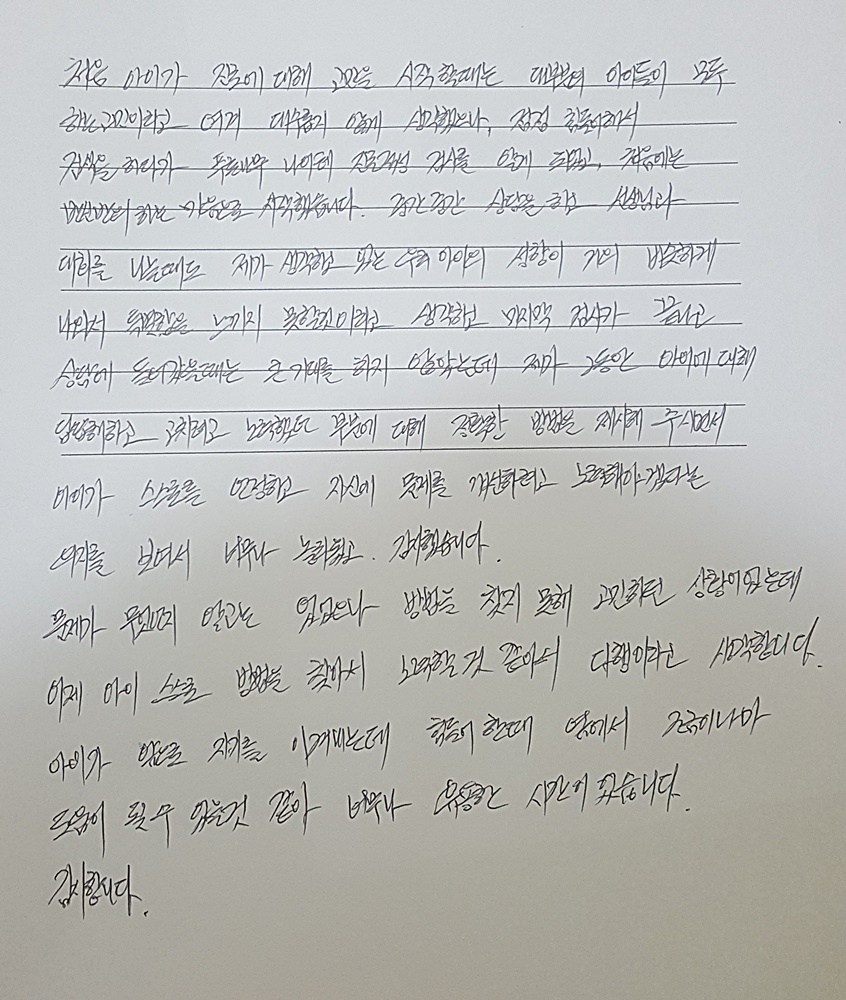 처음 아이가 진로에 대해 고민을 시작 할때는 대부분의 아이들이 모두
하는 고민이라고 여겨 대수롭지 않게 생각했으나, 점점 힘들어해서
검색을 하다가 나이테 진로적성 검사를 알게 되었고, 처음에는
반신반의 하는 마음으로 시작했습니다. 중간중간 상담을 하고 선생님과
대화를 나눌때도 제가 생각하고 있는 우리 아이의 성향이 거의 비슷하게
나와서 특별함을 느끼지 못할것이라고 생각하고 마지막 검사가 끝나고
상담에 들어갔을때는 큰 기대를 하지 않았는데 제가 그동안 아이에 대해
답답해하고 고치려고 노력했던 부분에 대해 정확한 방법을 제시해 주시면서
아이가 스스로를 인정하고 자신의 문제를 개선하려고 노력해야겠다는
의지를 보여서 너무나 놀라웠고. 감사했습니다.
문제가 무엇인지 알고는 있었으나 방법을 찾지 못해 고민하던 상황이었는데
이제 아이 스스로 방법을 찾아서 노력할 것 같아서 다행이라고 생각합니다.
아이가 앞으로 자기를 이겨내는데 힘들어 할때 옆에서 조금이나마
도움이 될 수 있을것 같아 너무나 유용한 시간이 었습니다.
감사합니다.